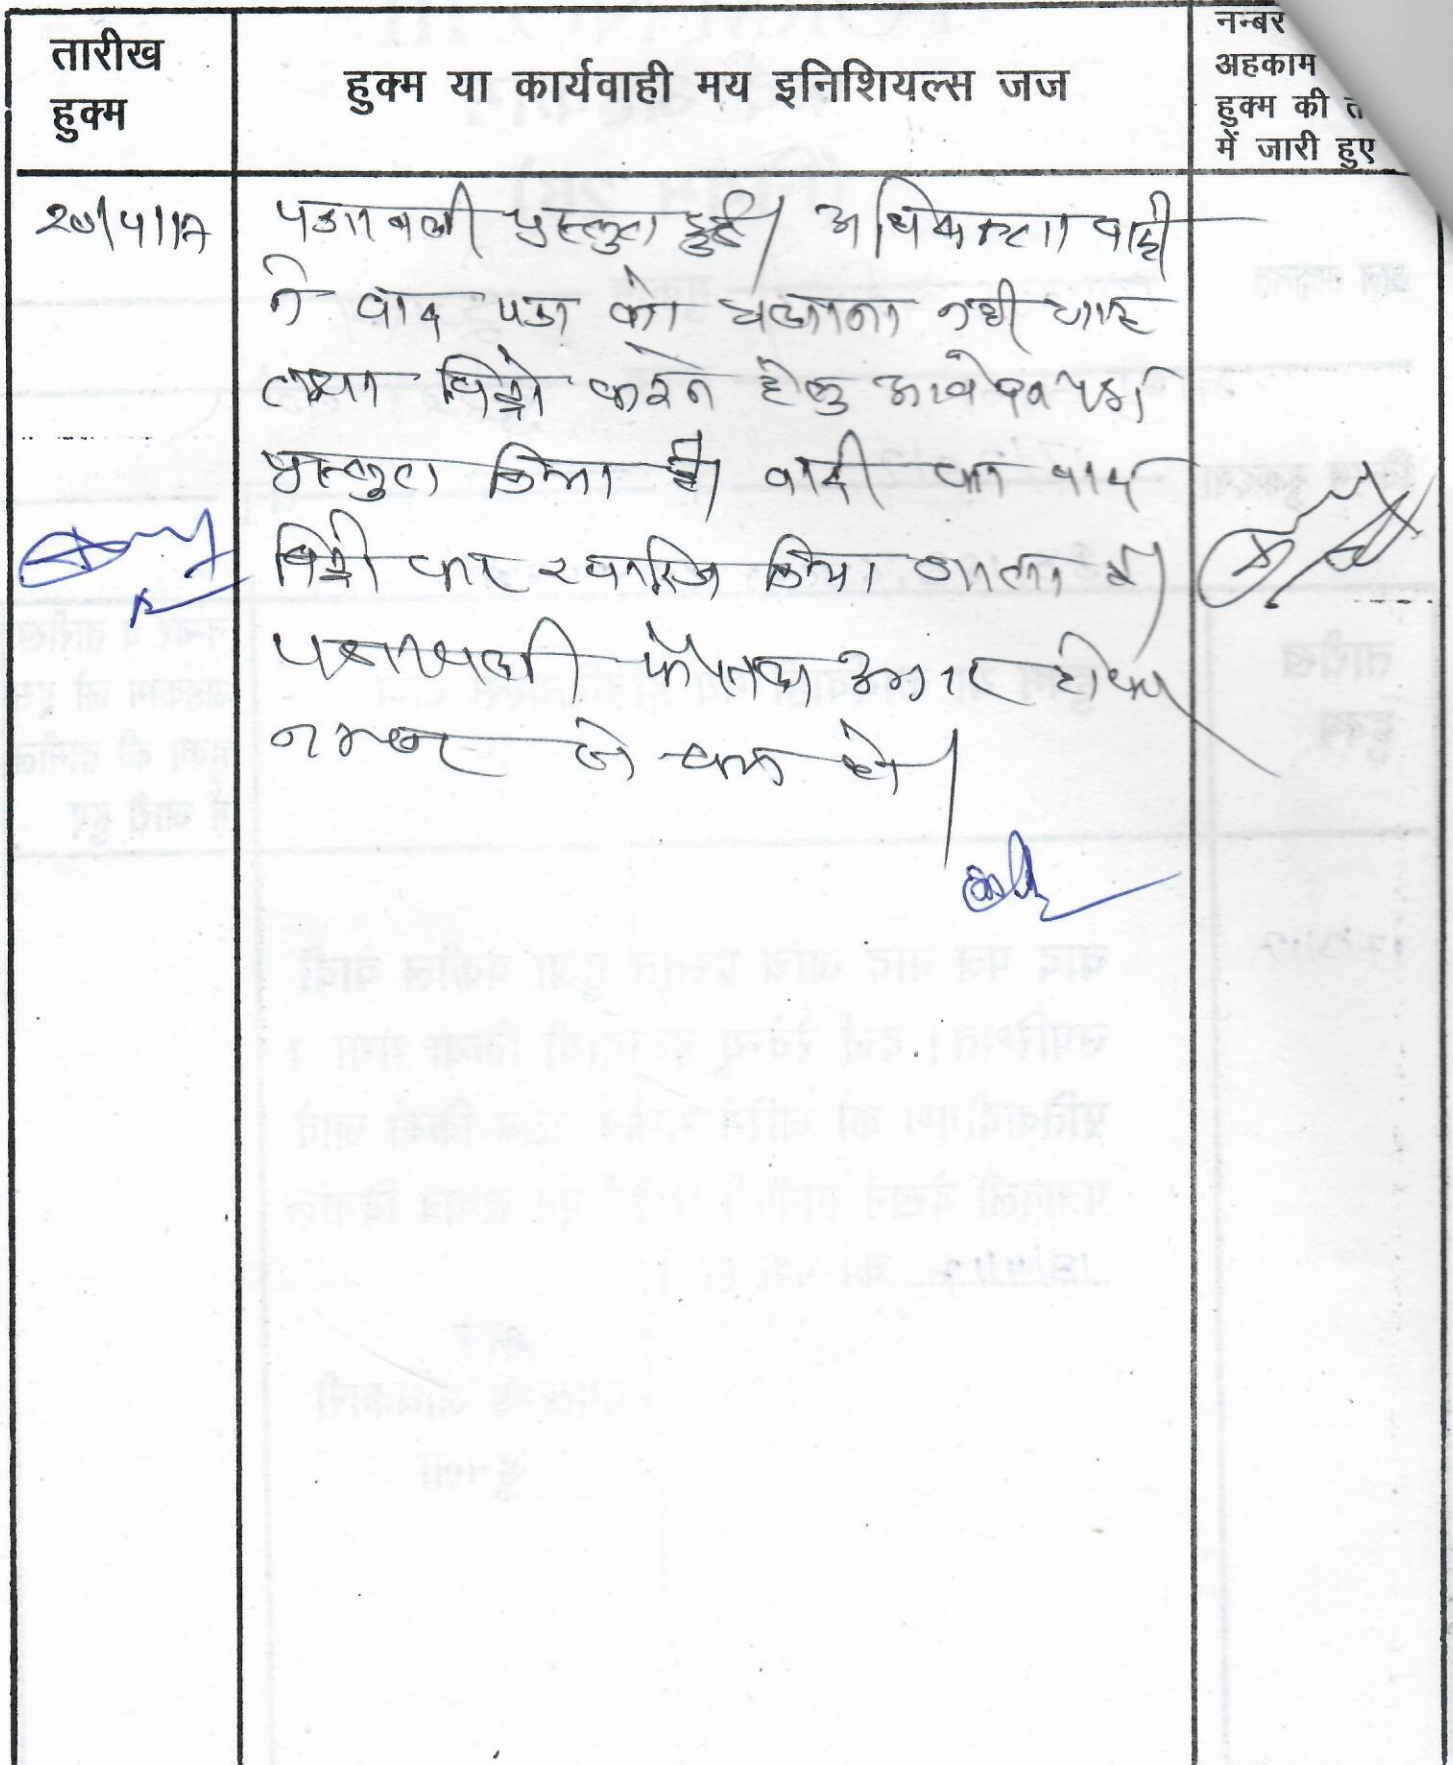 तारीख
हुक्म
हुक्म या कार्यवाही मय इनिशियल्स जज
नम्बर
अहकाम
हुक्म की त
में जारी हुए
पत्रावली प्रस्तुत हुई। अधिवक्ता वादी
ने वाद पत्र को चलाना नहीं चाह
तथा विड्रो करने हेतु आवेदन पत्र
प्रस्तुत किया है। वादी का वाद
विड्रो कर खारिज किया जाता है।
पत्रावली फैसल शुमार होकर
नम्बर से कम हो।